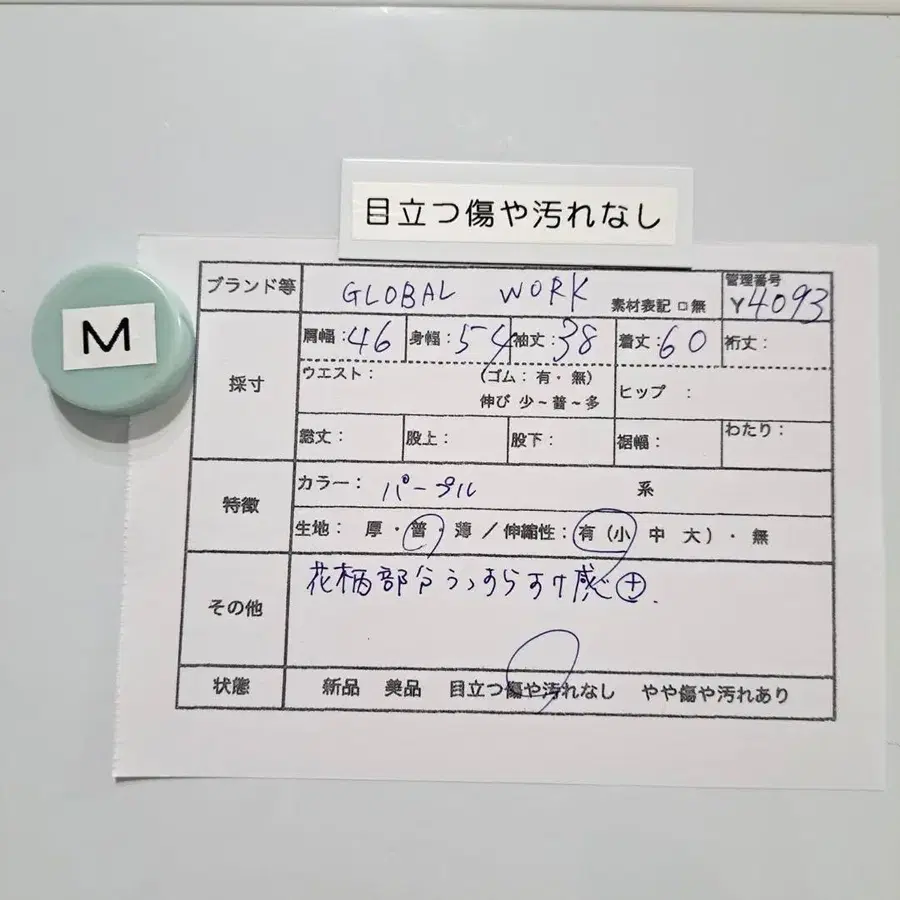 目立つ傷や汚れなし
M
ブランド等 GLOBAL WORK 素材表記 □ 無 管理番号 Y4093
採寸 肩幅:46 身幅:54 袖丈:38 着丈:60 裄丈:
ウエスト: (ゴム:有・無) ヒップ :
伸び 少~普~多
総丈: 股上: 股下: 裾幅: わたり:
特徴 カラー: パープル 系
生地: 厚・普・薄 / 伸縮性: 有(小 中 大)・無
その他 花柄部分うっすらすけ感+.
状態 新品 美品 目立つ傷や汚れなし やや傷や汚れあり